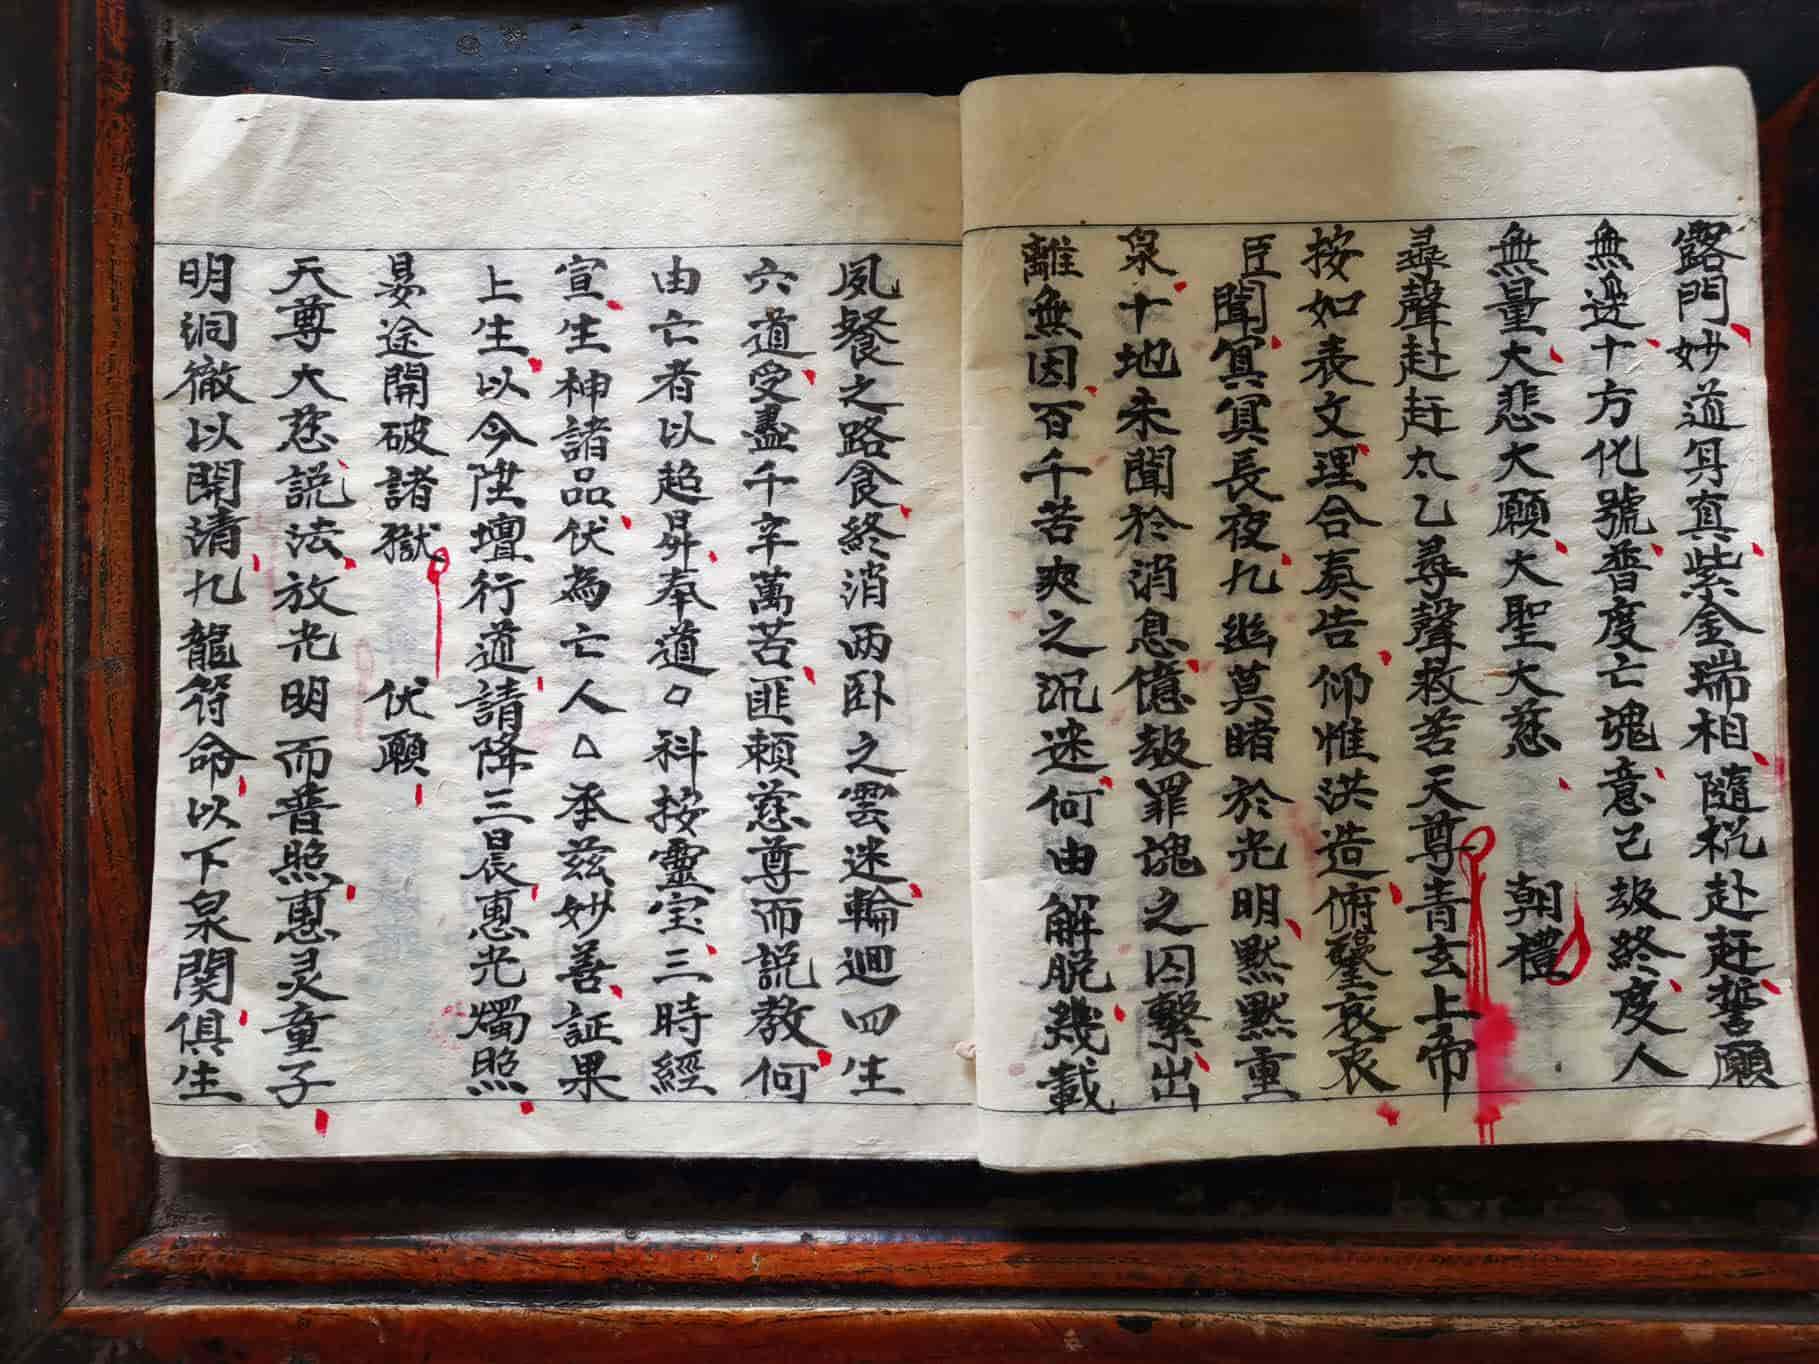 露門妙道身真紫金瑞相隨机赴赶誓願
無邊十方化號普度亡魂意己劫終度人
無量大悲大願大聖大慈　朝禮
尋聲赴赶太乙尋聲救苦天尊青玄上帝
按如表文理合奏告仰惟洪造俯鑒哀衷
臣聞冥冥長夜九幽莫睹於光明默默重
泉十地未聞於消息億劫罪魂之囚繫出
離無因百千苦爽之沉迷何由解脫幾載
夙餐之路食終消两卧之雲迷輪迴四生
六道受盡千辛萬苦匪賴慈尊而説教何
由亡者以超昇奉道□科按靈宝三時經
宣生神諸品伏為亡人△承茲妙善証果
上生以今陞壇行道請降三晨惠光燭照
昜途開破諸獄　伏願
天尊大慈説法放光明而普照惠灵童子
明洞徹以開清九龍符命以下泉関俱生